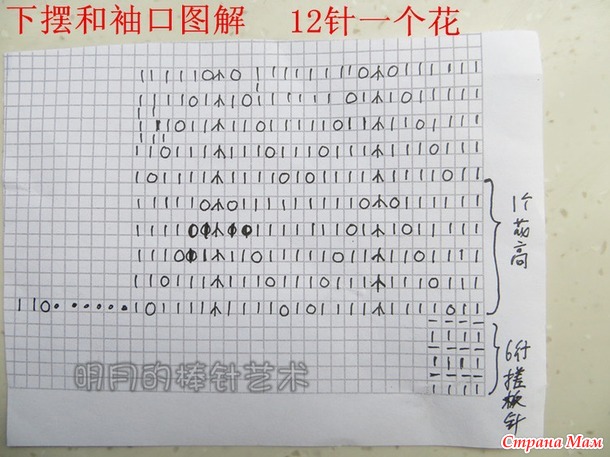 下摆和袖口图解 12针一个花
1个花高
6行搓板针
明月的棒针艺术
Страна Мам